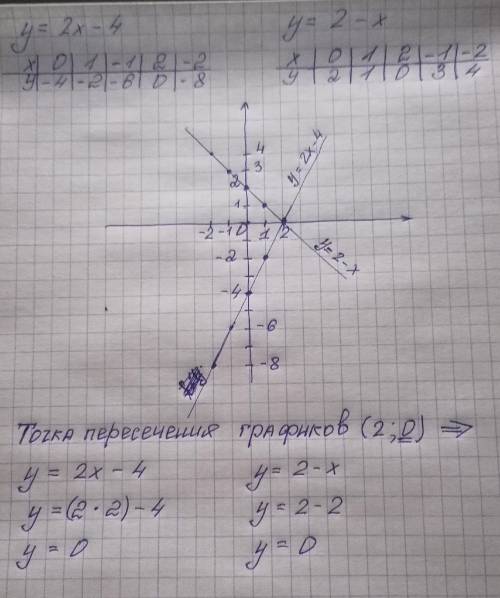 y = 2x - 4
x | 0 | 1 | -1 | 2 | -2
y | -4 | -2 | -6 | 0 | -8
y = 2 - x
x | 0 | 1 | 2 | -1 | -2
y | 2 | 1 | 0 | 3 | 4
4
3
2
1
-2 -1 0 1 2
-2
-4
-6
-8
y = 2x - 4
y = 2 - x
Точка пересечения графиков (2; 0) ⇒
y = 2x - 4
y = (2 · 2) - 4
y = 0
y = 2 - x
y = 2 - 2
y = 0